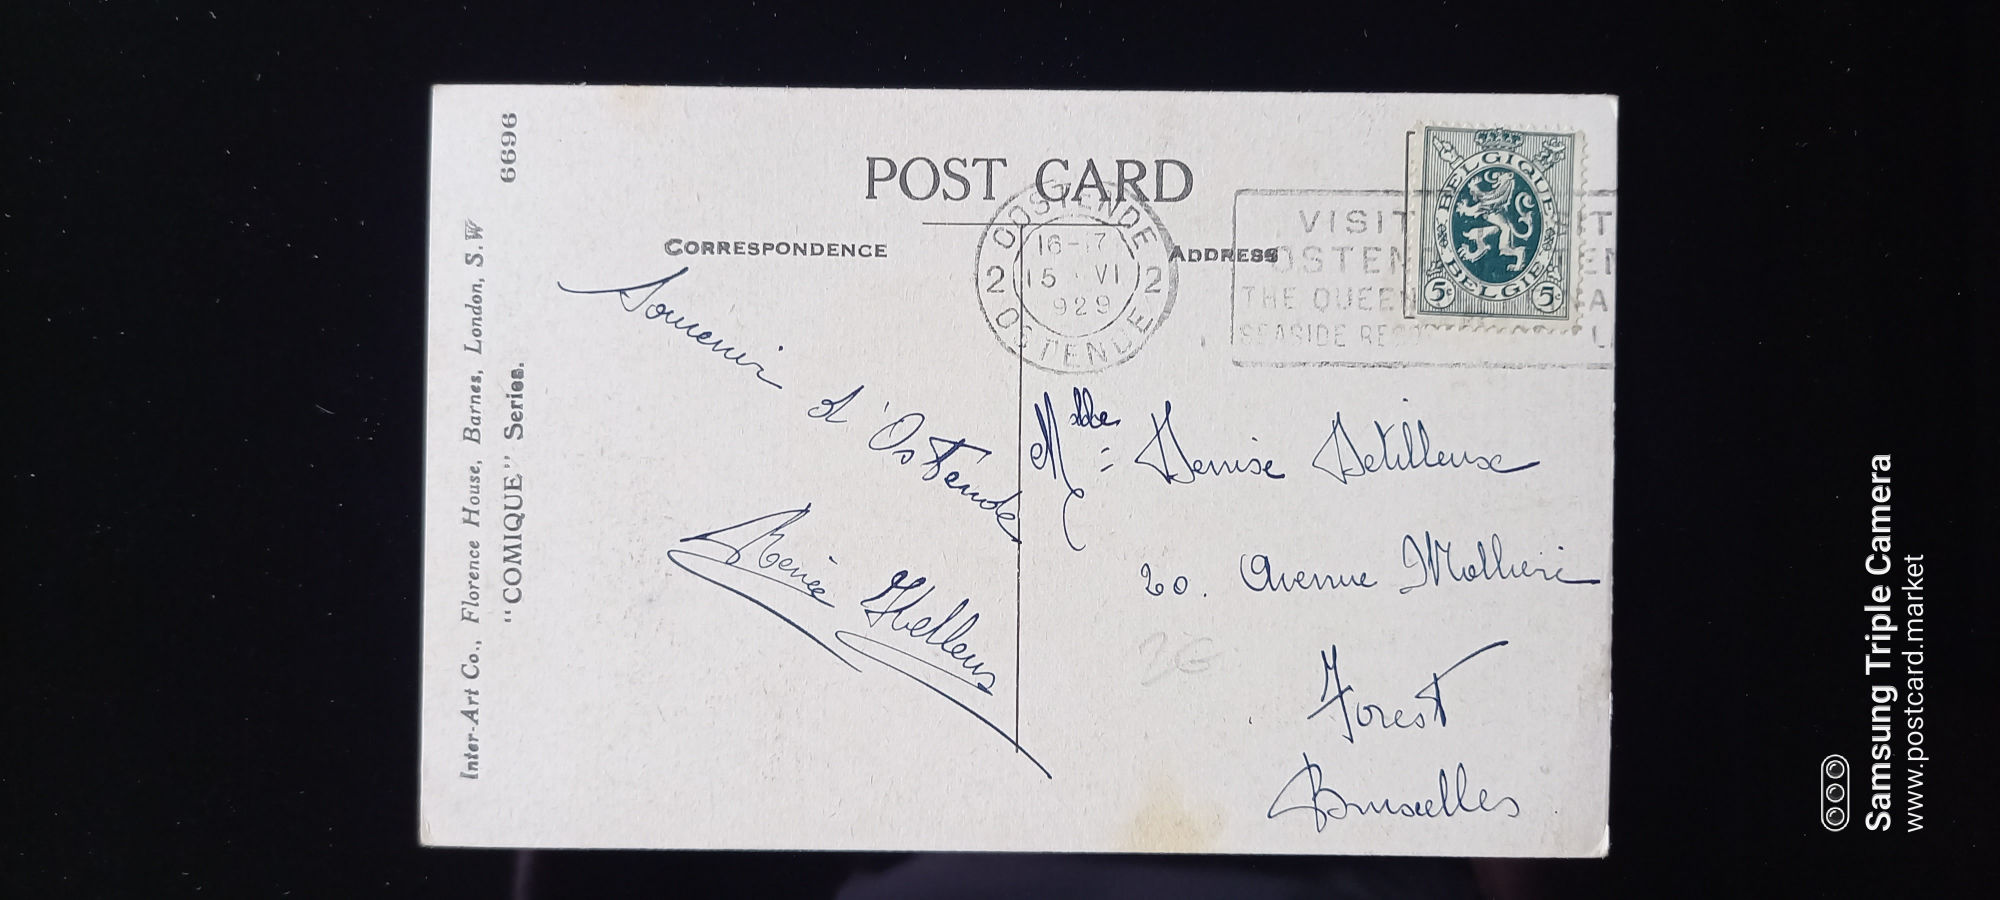 POST CARD
CORRESPONDENCE
ADDRESS
Inter-Art Co., Florence House, Barnes, London, S.W
"COMIQUE" Series.
6696
OOSTENDE
16-17
2 15 VI 2
929
OSTENDE
VISIT
OSTEN
THE QUEEN
SEASIDE RESO
BELGIQUE
BELGIE
5c 5c
Souvenir d'Ostende
Renée
Mlle Denise Detilleux
20. Avenue Mollieri
Forest
Bruxelles
Samsung Triple Camera
www.postcard.market